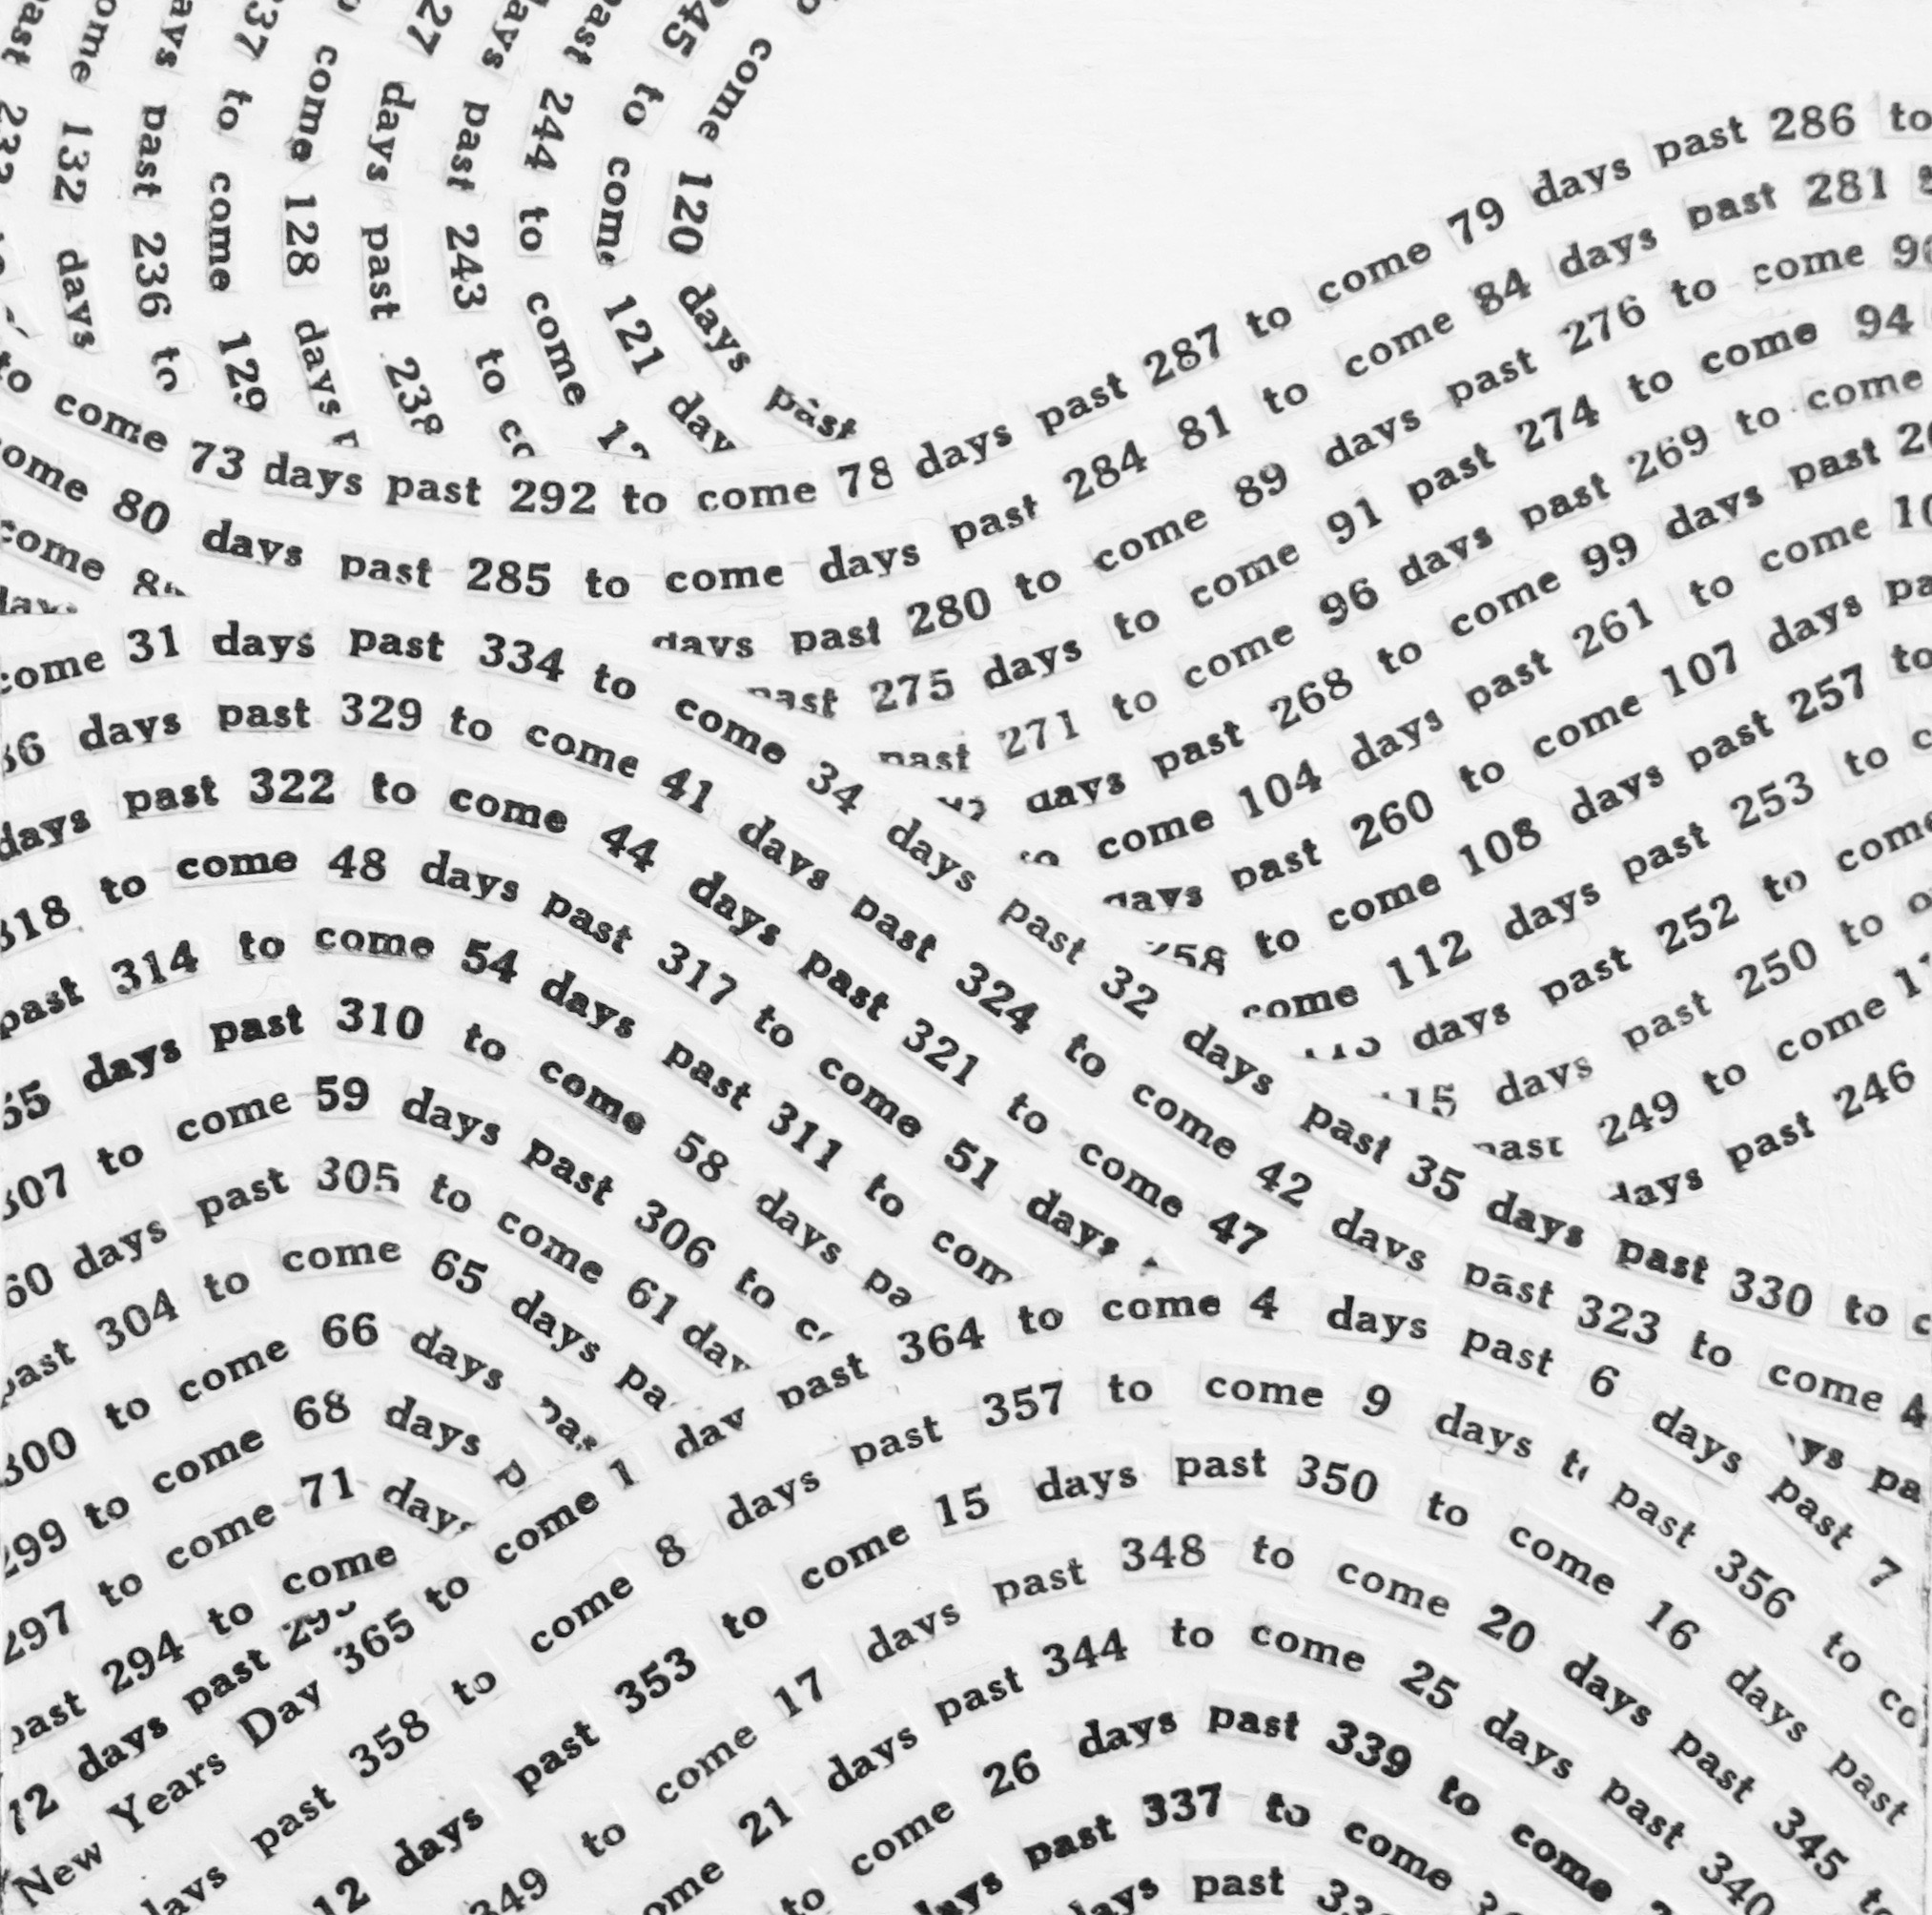 past 232
come 132 days
days past 236 to
337 to come 129
come 128 days
27 days past 238
days past 243 to
past 244 to come
245 to come 121
come 120 days past
to come 73 days past 292 to come 78 days past 287 to come 79 days past 286 to
come 80 days past 285 to come days past 284 81 to come 84 days past 281
come
days past 280 to come 89 days past 276 to come
past 275 days to come 91 past 274 to come 94
past 271 to come 96 days past 269 to come
days past 268 to come 99 days past
to come 104 days past 261 to come
days past 260 to come 107 days
258 to come 108 days past 257 to
come 112 days past 253 to
days past 252 to come
115 days past 250 to
past 249 to come
days past 246
come 31 days past 334 to come 34 days past 32 days past 35 days past 330 to
36 days past 329 to come 41 days past 324 to come 42 days past 323 to come
days past 322 to come 44 days past 321 to come 47
318 to come 48 days past 317 to come 51 days
past 314 to come 54 days past 311 to
55 days past 310 to come 58 days
307 to come 59 days past 306 to
60 days past 305 to come 61
past 304 to come 65 days
300 to come 66 days
299 to come 68 days
297 to come 71 days
past 294 to come
72 days past
New Years Day 365 to come 1 day past 364 to come 4 days past 6 days past 7
days past 358 to come 8 days past 357 to come 9 days to past 356 to
12 days past 353 to come 15 days past 350 to come 16 days past
349 to come 17 days past 348 to come 20 days past 345 to
come 21 days past 344 to come 25 days past 340
to come 26 days past 339 to come
days past 337 to come
days past